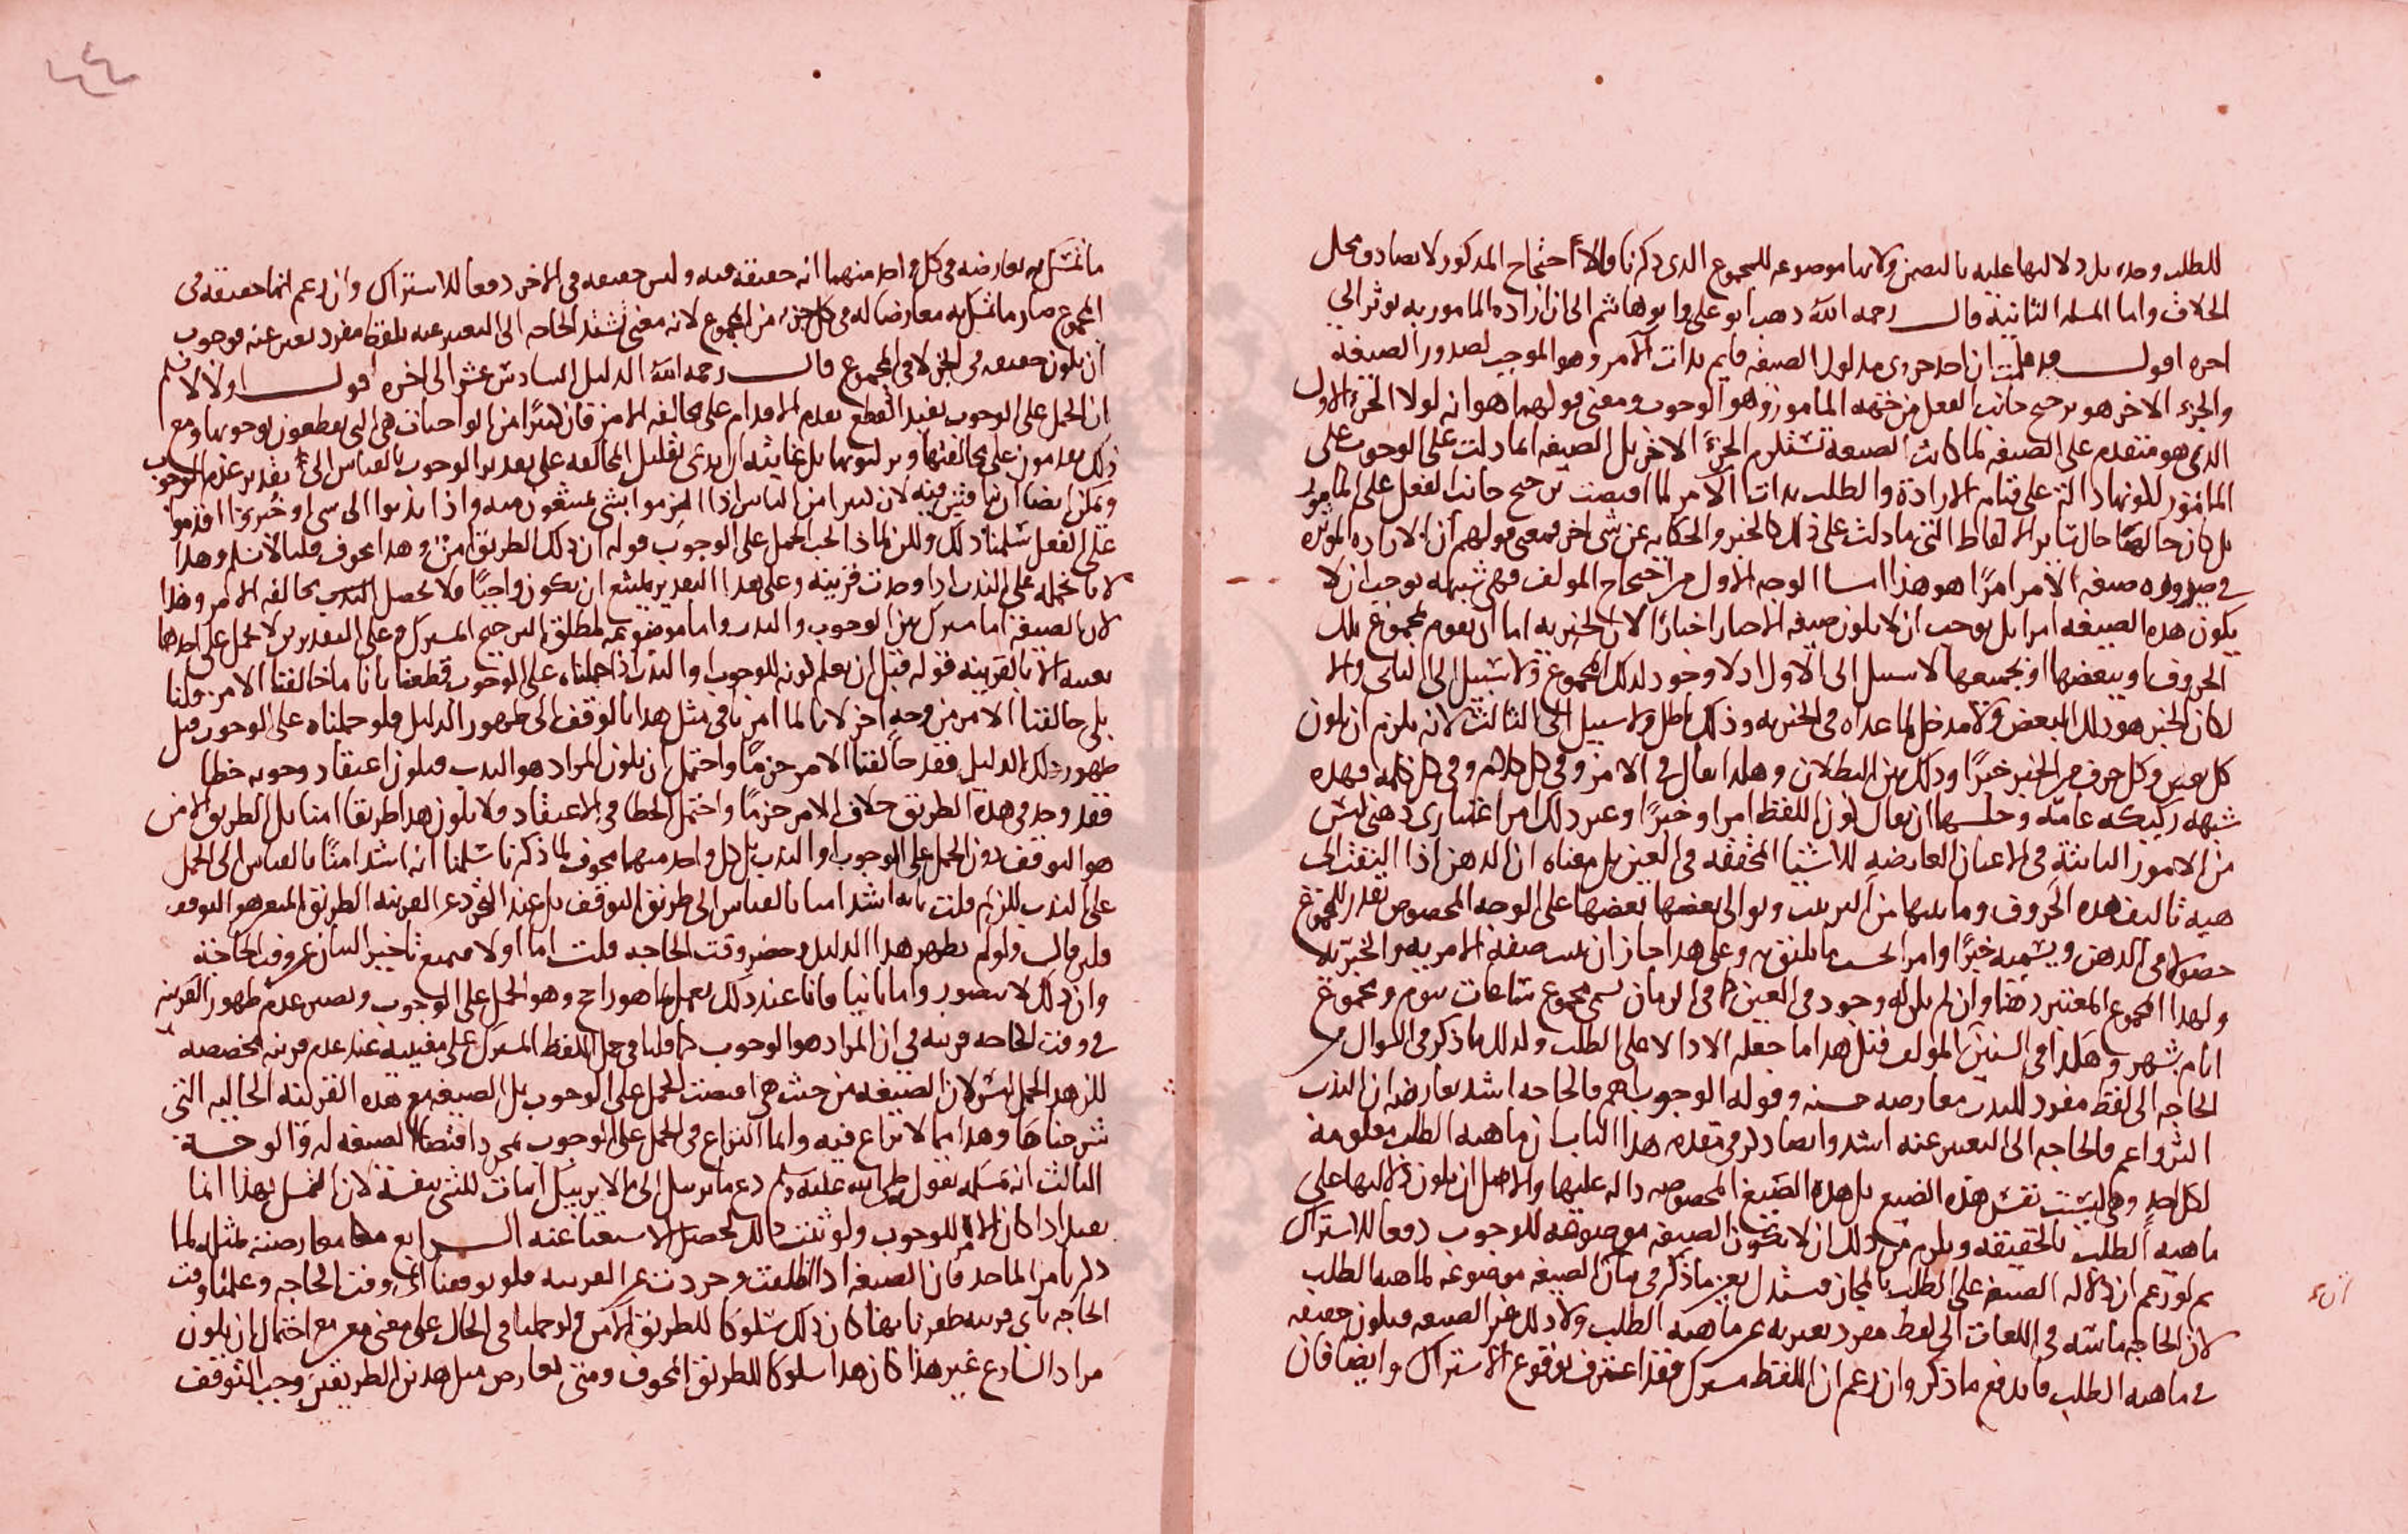 للطلب وحده بل دلالتها عليه بالتضمن ولانها موضوعه للمجموع الذى ذكرنا والاحتجاج المذكور لا يصادف محل
الخلاف واما المسله الثانية قال رحمه الله ذهب ابو على وابو هاشم الى ان اراده المامور به توثر الى
اخره اقول قد علمت ان احد جزوى مدلول الصيغه قايم بذات الآمر وهو الموجب لصدور الصيغه
والجزء الاخر هو ترجيح جانب الفعل من جهه المامور وهو الوجوب ومعنى قولهما هو انه لولا الجزء الاول
الذى هو متقدم على الصيغه لما كانت الصيغة تستلزم الجزء الاخر بل الصيغه انما دلت على الوجوب على
المامور لكونها دالة على قيام الارادة والطلب بذات الآمر لما اقتضت ترجيح جانب الفعل على المامور
بل كان حالها حال ساير الالفاظ التى ما دلت على ذلك كالخبر والحكايه عن شى اخر فمعنى قولهم ان الاراده الموثره
فى صيروره صيغه الامر امرًا هو هذا اما الوجه الاول من احتجاج المولف فهى شبهه توجب ان لا
يكون هذه الصيغه امرا بل توجب ان لا يكون صيغه الاخبار اخبارًا لان الخبريه اما ان تقوم بمجموع تلك
الحروف او ببعضها او بجميعها لا سبيل الى الاول اذ لا وجود لذلك المجموع ولا سبيل الى الثانى والا
لكان الخبر هو ذلك البعض ولا مدخل لما عداه فى الخبريه وذلك باطل ولا سبيل الى الثالث لانه يلزم ان يكون
كل بعض وكل حرف من الخبر خبرًا وذلك بين البطلان وهكذا يقال فى الامر وفى كل كلام وفى كل كلمه فهذه
شبهه ركيكه عامّه وحلها ان يقال كون اللفظ امرا او خبرًا وغير ذلك امر اعتبارى ذهنى ليس
من الامور الثابتة فى الاعيان العارضه للاشيا المحققه فى العين بل معناه ان الذهن اذا التفت الى
هيه تاليف هذه الحروف وما بينها من الترتيب وتوالى بعضها بعضها على الوجه المخصوص تقدر للمجموع
حصولا فى الذهن ويسميه خبرًا وامرا بحسب ما يليق به وعلى هذا جاز ان صيغة الامريه والخبريه
ولهذا المجموع المعتبر ذهنا وان لم يكن له وجود فى العين كما فى الزمان يسمى مجموع ساعات بيوم ومجموع
ايام بشهر وهكذا فى السنين المولف فتل هذا ما جعله الا دالا على الطلب ولذلك ما ذكر فى السوال من
الحاجه الى لفظ مفرد للندب معارضه حسنه وقوله الوجوب اهم فالحاجه اشد يعارضه ان الندب
اكثر واعم فالحاجه الى التعبير عنه اشد وايضا ذكر فى تقدمه هذا الباب ان ماهيه الطلب معلومة
لكل احد وهى ليست نفس هذه الصيغ بل هذه الصيغ المخصوصه داله عليها والاصل ان يكون دلالتها على
ماهيه الطلب بالحقيقه ويلزم من ذلك ان لا تكون الصيغه موضوعه للوجوب دفعا للاشتراك
ثم لو زعم ان دلاله الصيغه على الطلب بالمجاز فيستدل بعين ما ذكر فى بيان الصيغه موضوعه لماهيه الطلب
لان الحاجه ماسه فى اللغات الى لفظ مفرد يعبر به عن ماهيه الطلب ولا ذلك غير الصيغه فيكون حقيقه
فى ماهيه الطلب فاندفع ما ذكر وان زعم ان اللفظ مشترك فقد اعترف بوقوع الاشتراك وايضا فان
ما تمسك به يعارضه فى كل واحد منهما انه حقيقه فيه وليس حقيقه فى الاخر دفعا للاشتراك وان زعم انها حقيقه فى
المجموع صار ما تمسك به معارضا له فى كل جزء من المجموع لانه معنى تشتد الحاجه الى التعبير عنه بلفظ مفرد يعبر عنه فوجب
ان يكون حقيقه فى الجزء لا فى المجموع قال رحمه الله الدليل السادس عشر الى اخره اقول اولا لا نسلم
ان الحمل على الوجوب يفيد القطع بعدم الاقدام على مخالفه الامر فان كثيرًا من الواجبات هى التى يقطعون بوجوبها ومع
ذلك يقدمون على مخالفتها وتركونها بل غايته ان يدعى تقليل المخالفه على تقدير الوجوب بالقياس الى تقدير عدم الوجوب
ويمكن ايضا ان فيه لان كثيرا من الناس اذا الزموا بشى يستنعون منه واذا ندبوا الى شى او خيروا اقدموا
على الفعل سلمنا ذلك ولكن لماذا يجب الحمل على الوجوب قوله ان ذلك الطريق امن وهذا مخوف قلنا لا نسلم وهذا
لانا نحمله على الندب اذا وجدت قرينه وعلى هذا التقدير يمتنع ان يكون واجبًا فلا يحصل مخالفه الامر وهذا
لان الصيغه اما مشترك بين الوجوب والندب واما موضوعه لمطلق الترجيح المشترك وعلى التقديرين لا يحمل على احدهما
بعينه الا بالقرينه قوله قبل ان يعلم كونه للوجوب او الندب اذا حملناه على الوجوب قطعنا بانا ما خالفنا الامر قلنا
بلى خالفنا الامر من وجه اخر لانا لما امرنا فى مثل هذا بالوقف الى ظهور الدليل فلو حملناه على الوجوب قبل
ظهور ذلك الدليل فقد خالفنا الامر جزمًا واحتمل ان يكون المراد هو الندب فيكون اعتقاد وجوبه خطا
فقد وجد فى هذه الطريق خلاف الامر جزمًا واحتمل الخطا فى الاعتقاد فلا يكون هذا طريقا امنا بل الطريق الامن
هو التوقف دون الحمل على الوجوب او الندب بل كل واحد منهما مخوف لما ذكرنا سلمنا انه اشد امنًا بالقياس الى الحمل
على الندب لكن لم قلت بانه اشد امنا بالقياس الى طريق التوقف بل عند التجرد عن القرينه الطريق المتعين هو التوقف
فلين قال فلو لم يظهر هذا الدليل وحضر وقت الحاجه قلت اما اولا فيمتنع تاخير البيان عن وقت الحاجة
وان ذلك لا يتصور واما ثانيا فانا عند ذلك نعمل بما هو راجح وهو الحمل على الوجوب ويصير عدم ظهور القرينه
فى وقت الحاجه قرينه فى ان المراد هو الوجوب كما قلنا فى حمل اللفظ المشترك على معنييه عند عدم قرينه مخصصه
لكن هذا الحمل ليس لان الصيغه من حيث هى اقتضت الحمل على الوجوب بل الصيغه مع هذه القرينه الحاليه التى
شرحناها وهذا مما لا نزاع فيه وانما النزاع فى الحمل على الوجوب بمجرد اقتضا الصيغه له والوجه
الثالث انه تمسك بقول النبى صلى الله عليه وسلم دع ما يريبك الى ما لا يريبك اثبات للشى بنفسه لان التمسك بهذا انما
يفيد اذا كان الامر للوجوب ولو ثبت ذلك لحصل الاستغنا عنه الرابع معارضته بمثله لما
ذكر يا من الماخذ فان الصيغه اذا اطلقت وجردت عن القرينه فلو توقفنا الى وقت الحاجه وعملنا وقت
الحاجه باى قرينه ظفرنا بها كان ذلك سلوكا للطريق الامن ولو حملنا فى الحال على معنى معين مع احتمال ان يكون
مراد الشارع غير هذا كان هذا سلوكا للطريق المخوف ومتى تعارض مثل هذين الطريقين وجب التوقف